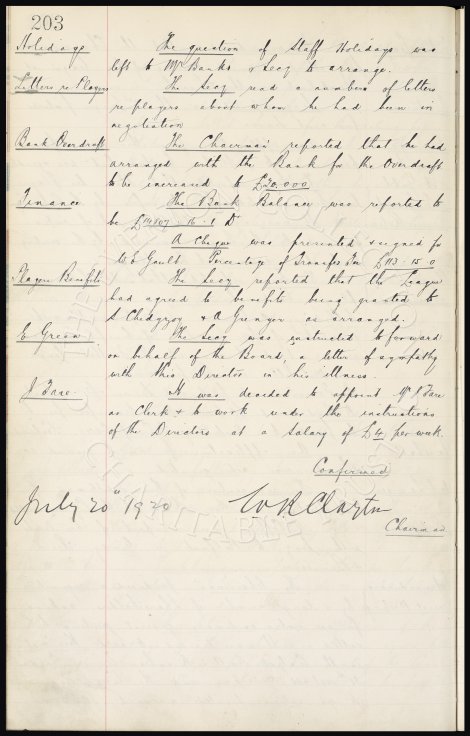 203
Holidays The question of Staff Holidays was
left to Mr Banks & Secy to arrange.
Letters re Players The Secy read a number of letters
re players about whom he had been in
negotiation
Bank Overdraft The Chairman reported that he had
arranged with the Bank for the Overdraft
to be increased to £20,000
Finance The Bank Balance was reported to
be 16 1 D
A Cheque was presented & signed for
W E Gault Percentage of Transfer Fee £113 15 0
Players Benefits The Secy reported that the League
had agreed to benefits being granted to
S Chedgzoy & A Grenyer as arranged.
E Green The Secy was instructed to forward
on behalf of the Board, a letter of sympathy
with this Director in his illness.
J Fare It was decided to appoint Mr J Fare
as Clerk & to work under the instructions
of the Directors at a Salary of £4 per week.
Confirmed
July 20th 1920 W R Clayton
Chairman
CHARITABLE